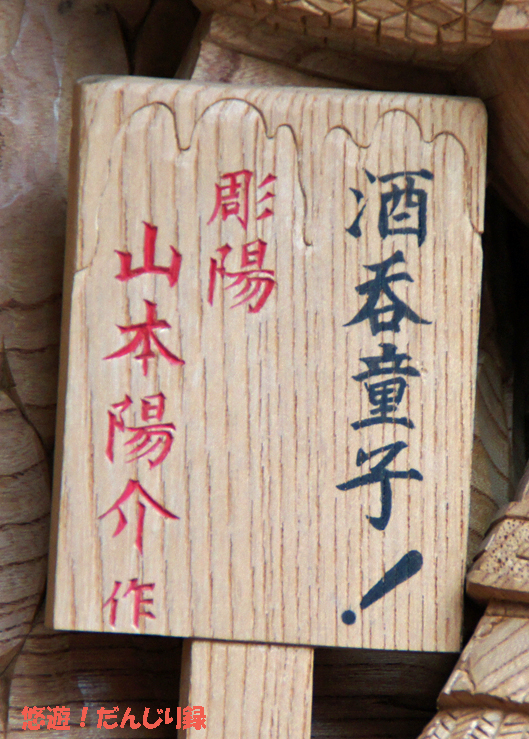 酒呑童子!
彫陽
山本陽介 作
悠遊!だんじり録